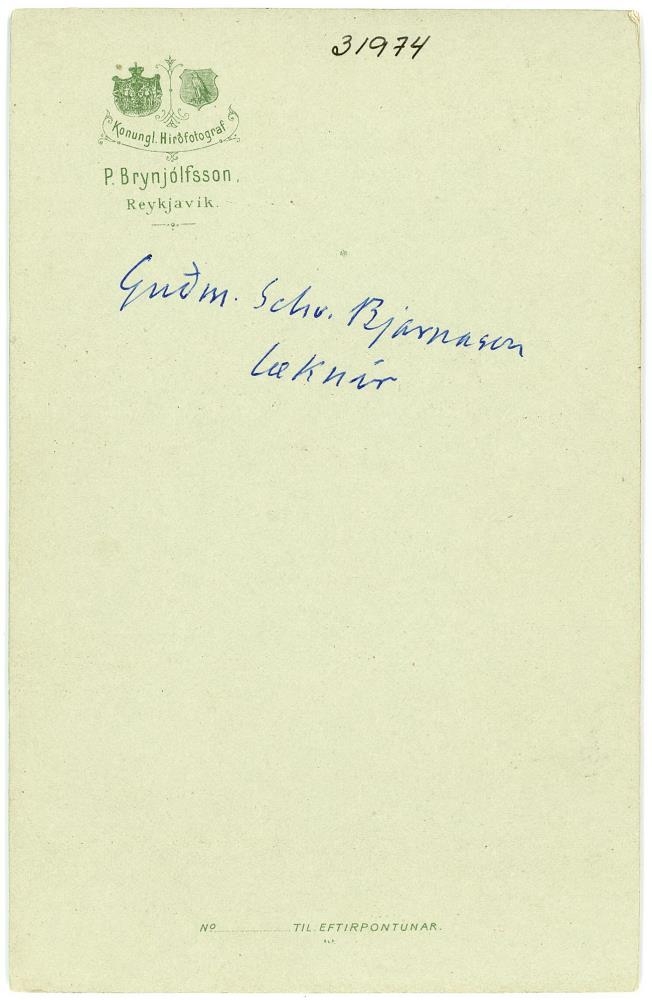 31974
Konungl. Hirðfotograf
P. Brynjólfsson.
Reykjavík.
Guðm. Schv. Bjarnason
læknir
No ............ TIL EFTIRPÖNTUNAR.